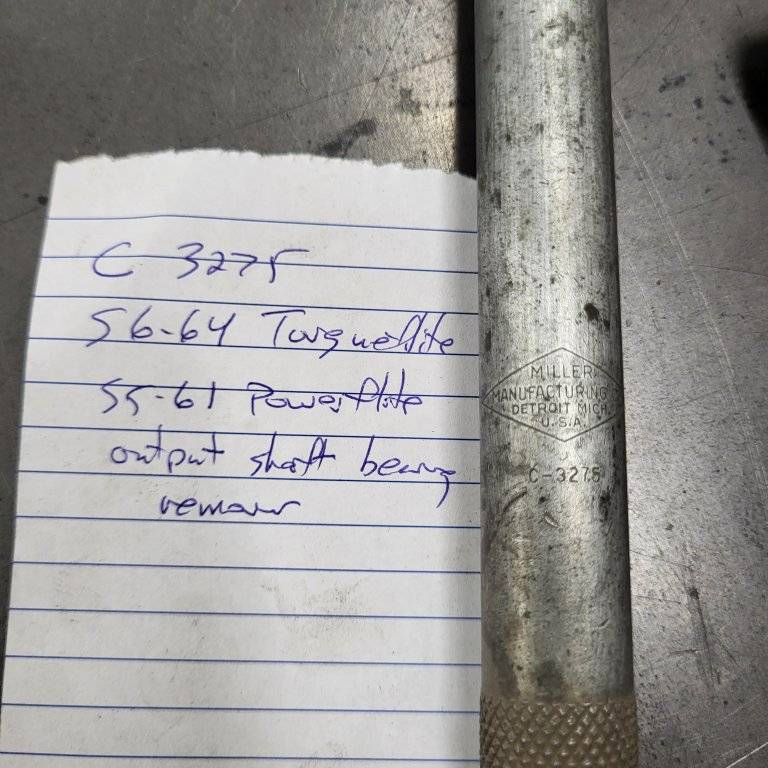 C 3275
56-64 Torqueflite
55-61 Powerflite
output shaft bearing
remover
MILLER
MANUFACTURING
DETROIT MICH.
U.S.A.
C-3275